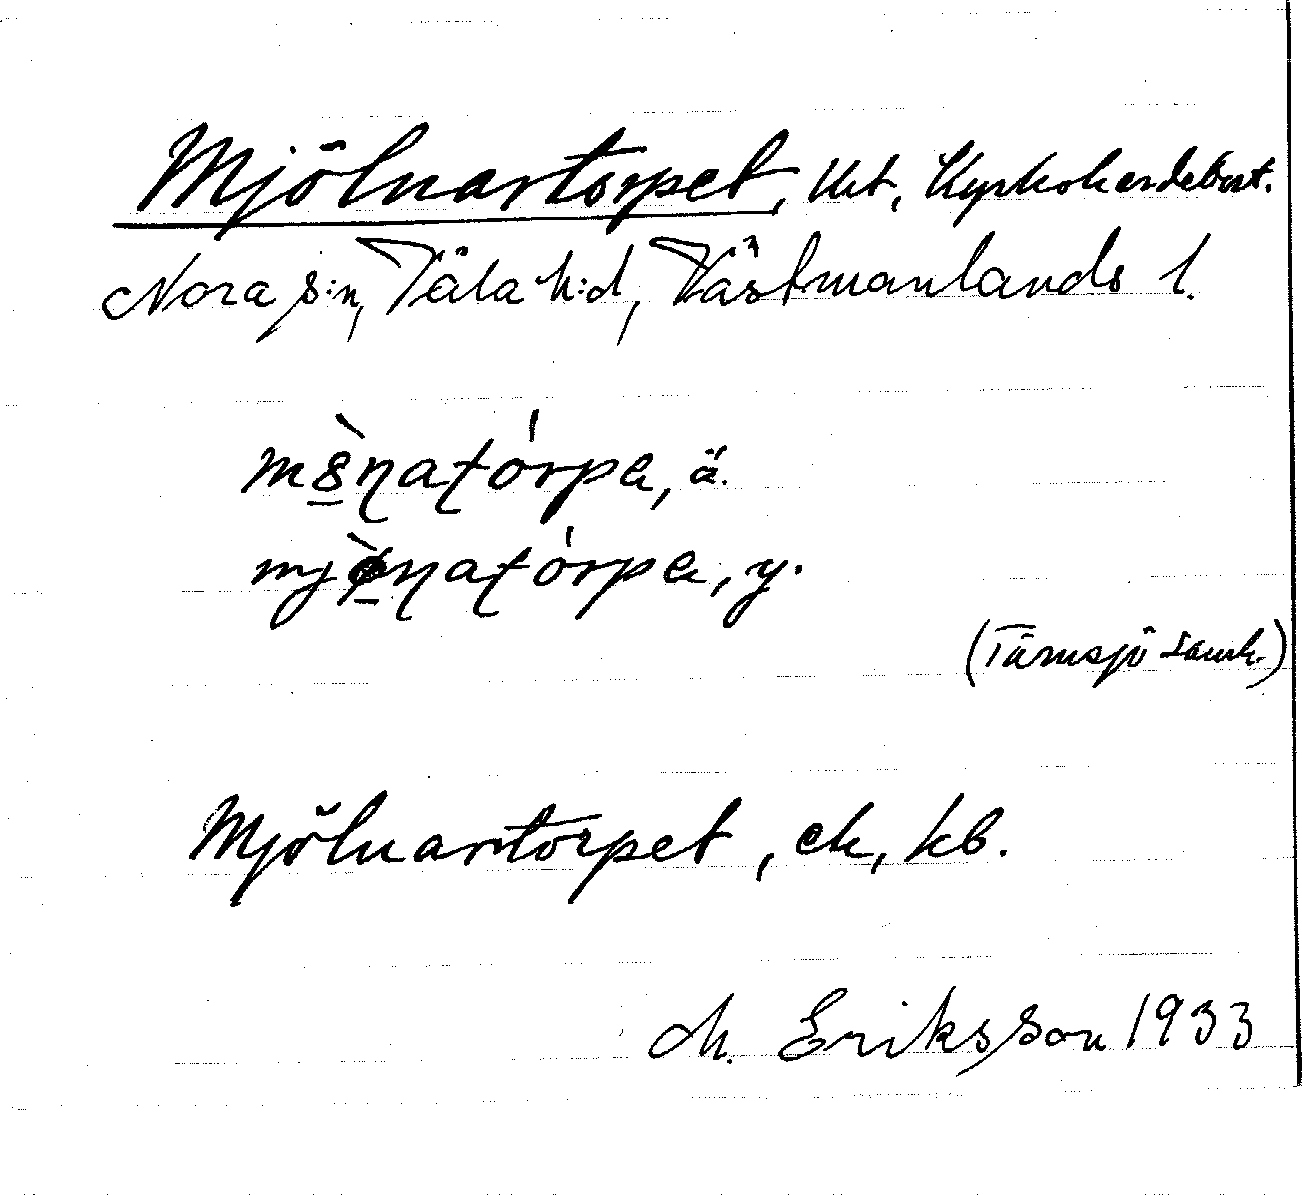 Mjölnartorpet, Utt, Kyrkoherdebost.
Nora s:n, Våla h:d, Västmanlands l.
mȣ̀ɳaʈórpa, ä.
mjø̀ɳaʈórpa, y.
(Tärnsjö samh.)
Mjölnartorpet, ek, kb.
M. Eriksson 1933